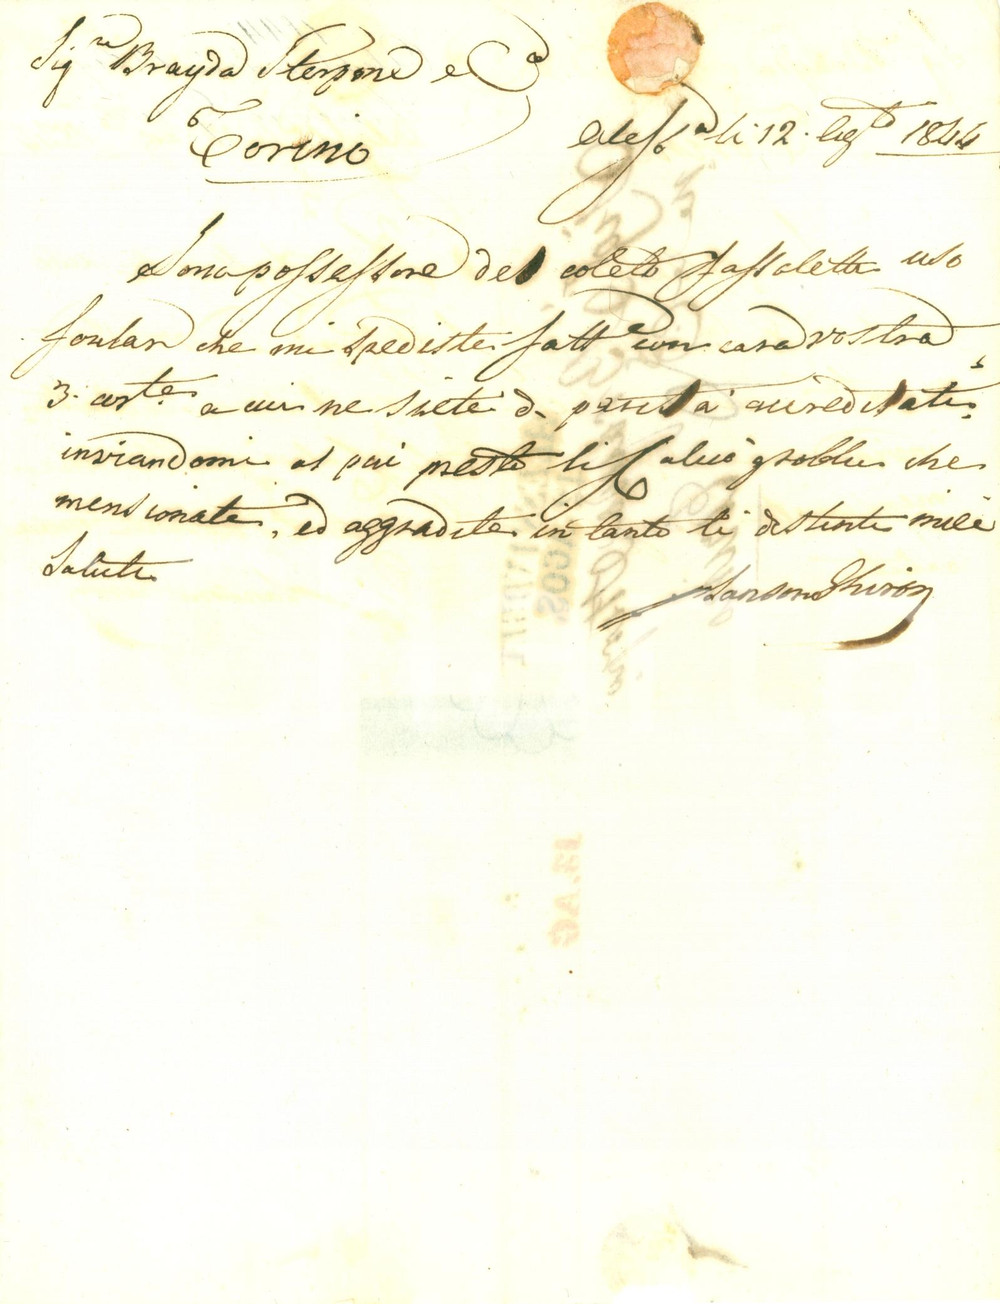 Sig.re Brayda Sterpone e C.a
Torino
Aless.a li 12 lug.o 1844
Sono possessore del coleto fassoletti uso
foular che mi spediste fatt con cara vostra
3. cor.te a cui ne siete di parità accreditati
inviandomi al più presto li che
mensionate, ed aggradite in tanto li distinti miei
Saluti
Sanson Ghiron